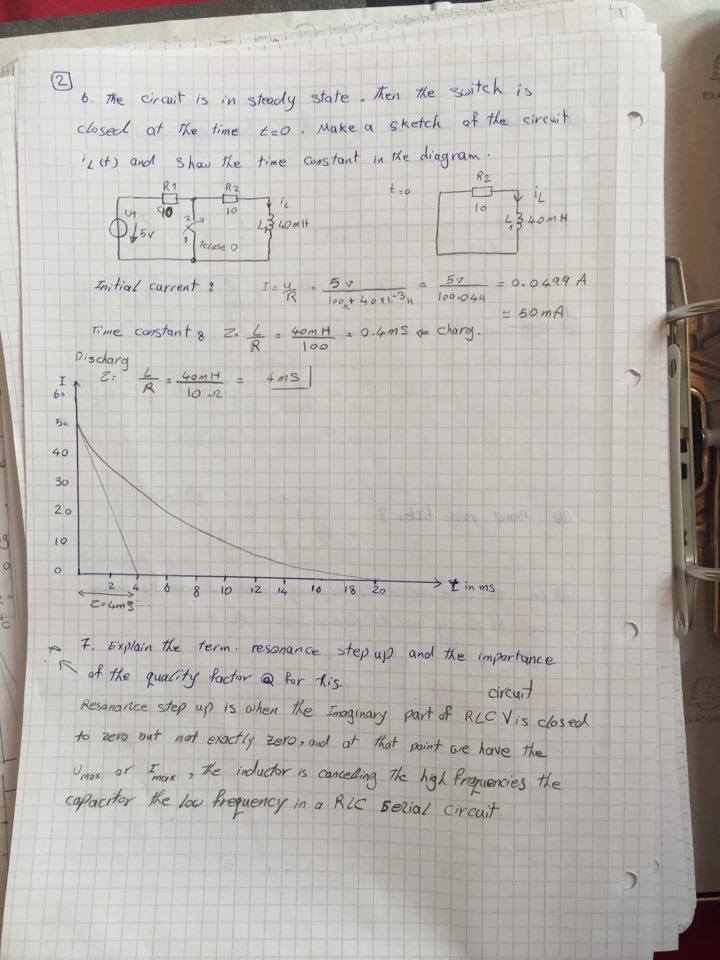 2
6. The circuit is in steady state. Then the switch is
closed at the time t=0. Make a sketch of the circuit
iL(t) and show the time constant in the diagram.
R1 R2 iL t=0 R2 iL
90 10 L1 40mH 10 L1 40mH
U1 5V 2 1 Tclose 0
Initial current: I = U/R = 5V/(100Ω + 40×10⁻³H) = 5V/100.04H = 0.0499 A
≈ 50mA
Time constant: τ = L/R = 40mH/100 = 0.4ms ← charg.
Discharg
τ= L/R = 40mH/10Ω = 4ms
I
60
50
40
30
20
10
0
2 4 6 8 10 12 14 16 18 20 t in ms
τ=4ms
7. Explain the term. resonance step up and the importance
of the quality factor Q for this.
circuit
Resonance step up is when the Imaginary part of RLC V is closed
to zero but not exactly zero, and at that point we have the
Umax or Imax, the inductor is cancelling the high frequencies the
capacitor the low frequency in a RLC serial circuit